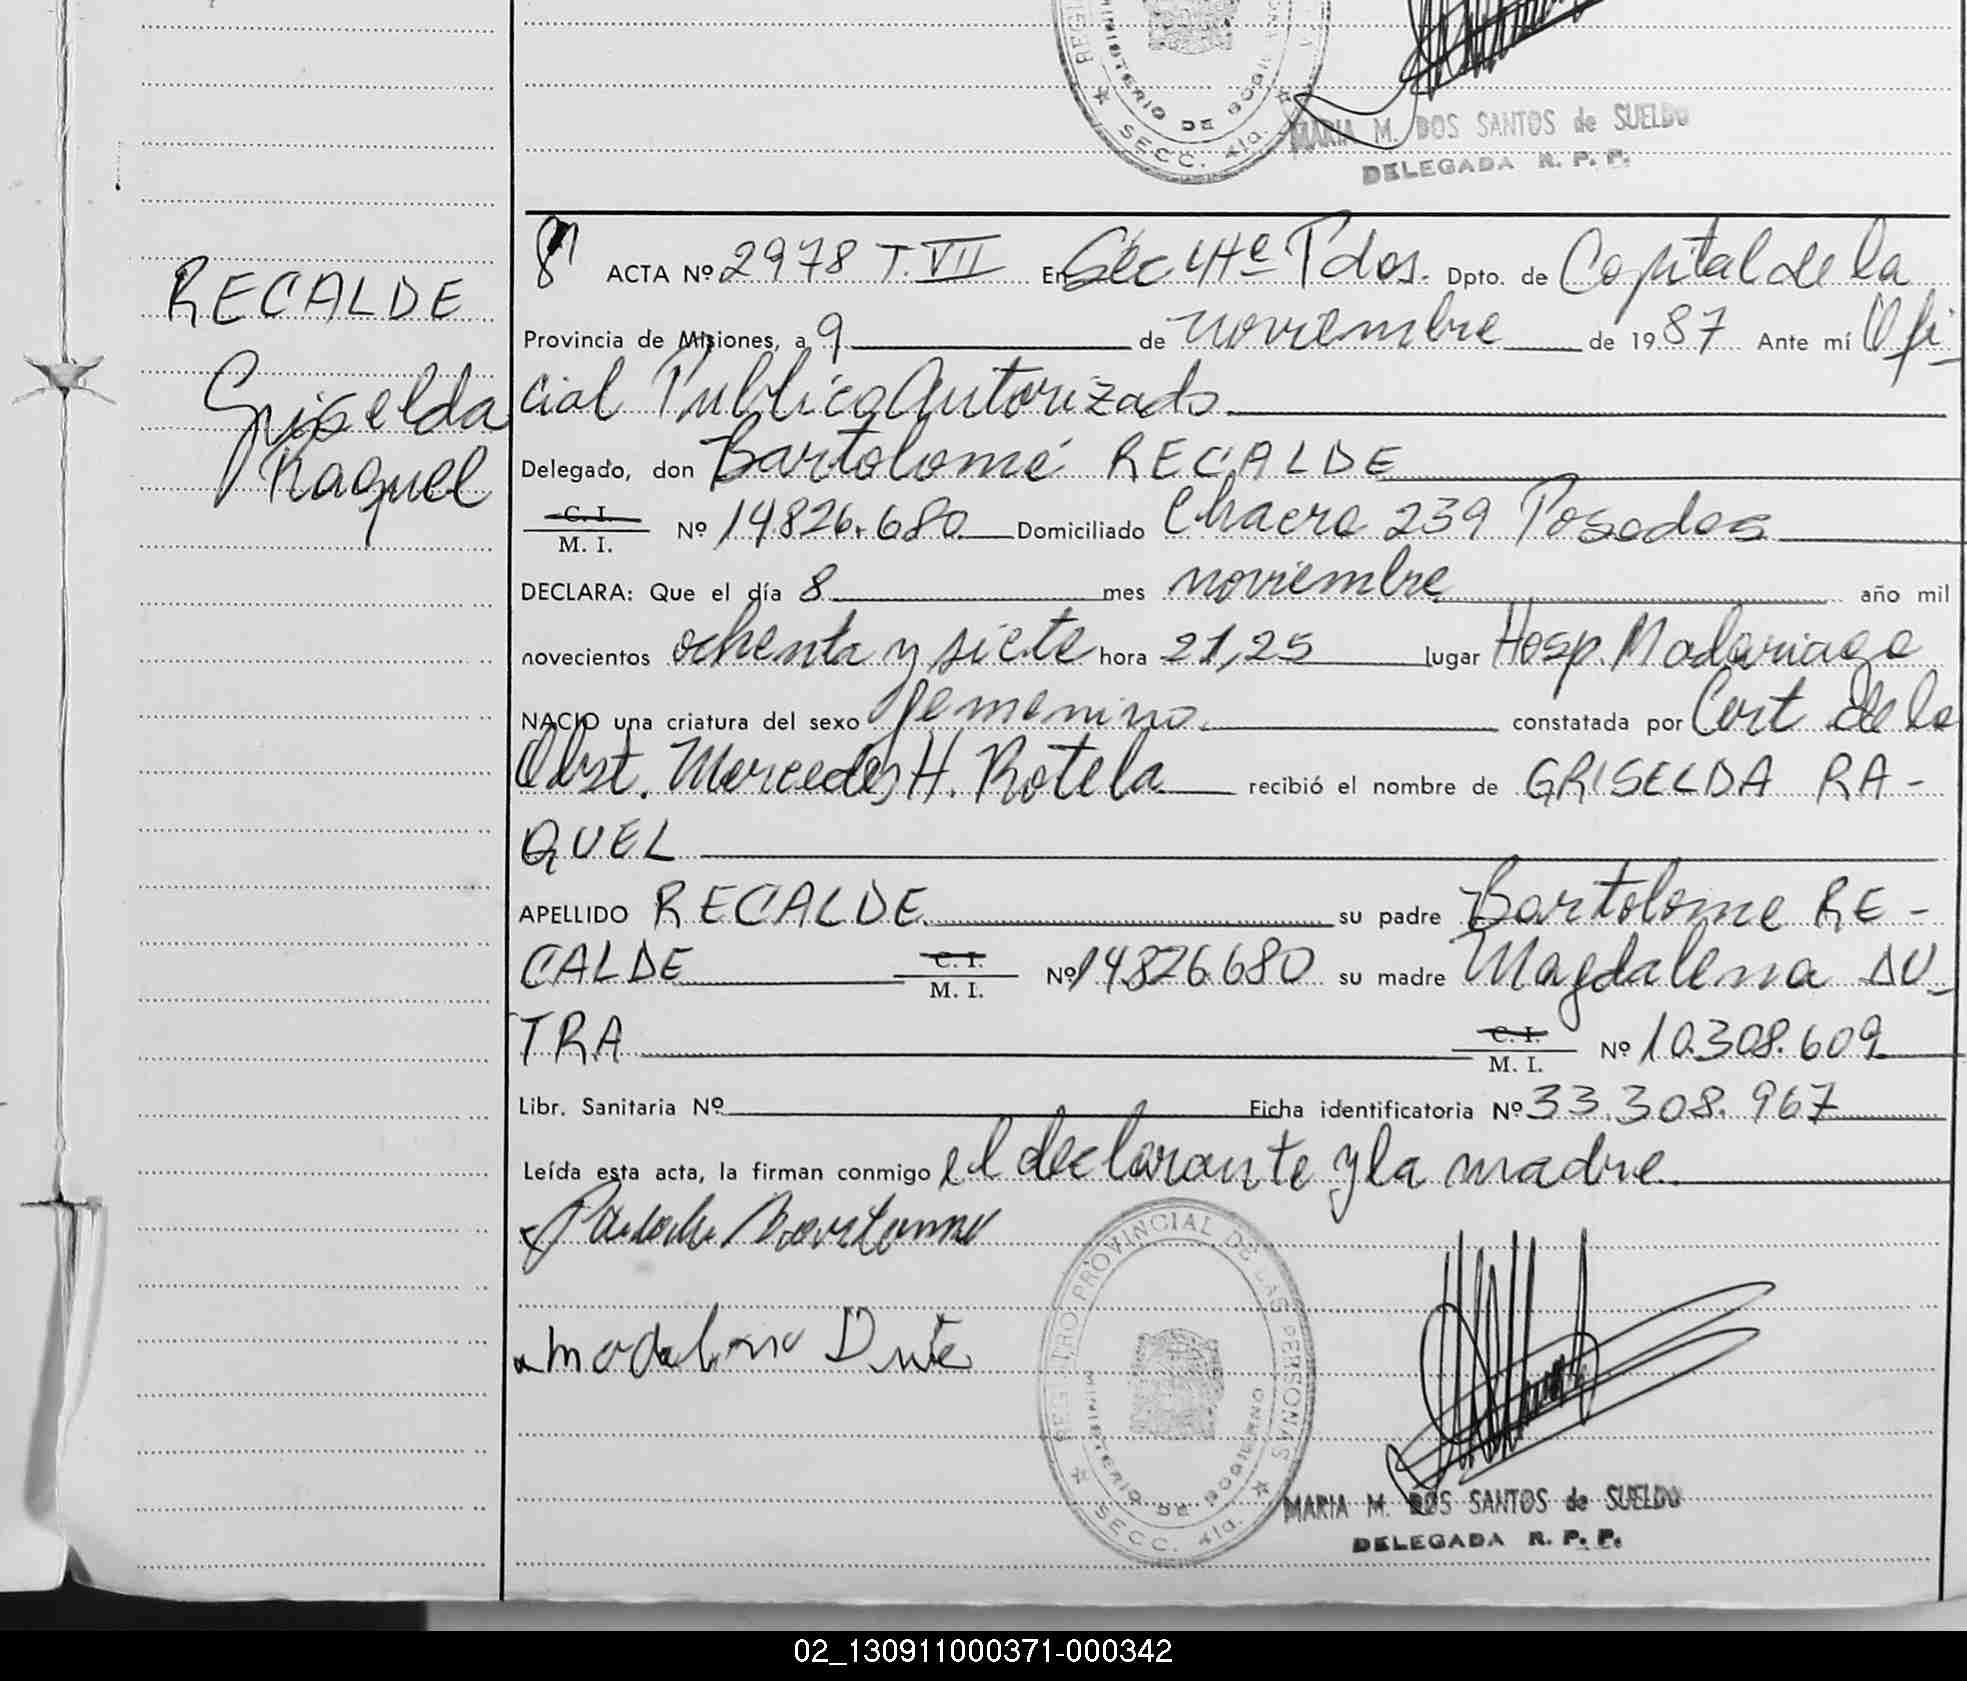 MINISTERIO DE GOBI
★ SECC. 4ta. ★
MARIA M. DOS SANTOS de SUELDO
DELEGADA R. P. P.
RECALDE
Griselda
Raquel
ACTA Nº 2978 T. VII En Sec 4ta Pdas. Dpto. de Capital de la
Provincia de Misiones, a 9 de noviembre de 1987 Ante mí Ofi-
cial Publico Autorizado
Delegado, don Bartolomé RECALDE
C. I.
M. I. Nº 14826.680 Domiciliado Chacra 239 Posadas
DECLARA: Que el día 8 mes noviembre año mil
novecientos ochenta y siete hora 21,25 lugar Hosp. Madariaga
NACIO una criatura del sexo femenino constatada por Cert de la
Obst. Mercedes H. Rotela recibió el nombre de GRISELDA RA-
QUEL
APELLIDO RECALDE su padre Bartolome RE-
CALDE C. I. M. I. Nº 14826.680 su madre Magdalena DU-
TRA C. I. M. I. Nº 10.308.609
Libr. Sanitaria Nº Ficha identificatoria Nº 33.308.967
Leída esta acta, la firman conmigo el declarante y la madre
REGISTRO PROVINCIAL DE LAS PERSONAS
MINISTERIO DE GOBIERNO
★ SECC. 4ta. ★
MARIA M. DOS SANTOS de SUELDO
DELEGADA R. P. P.
02_130911000371-000342